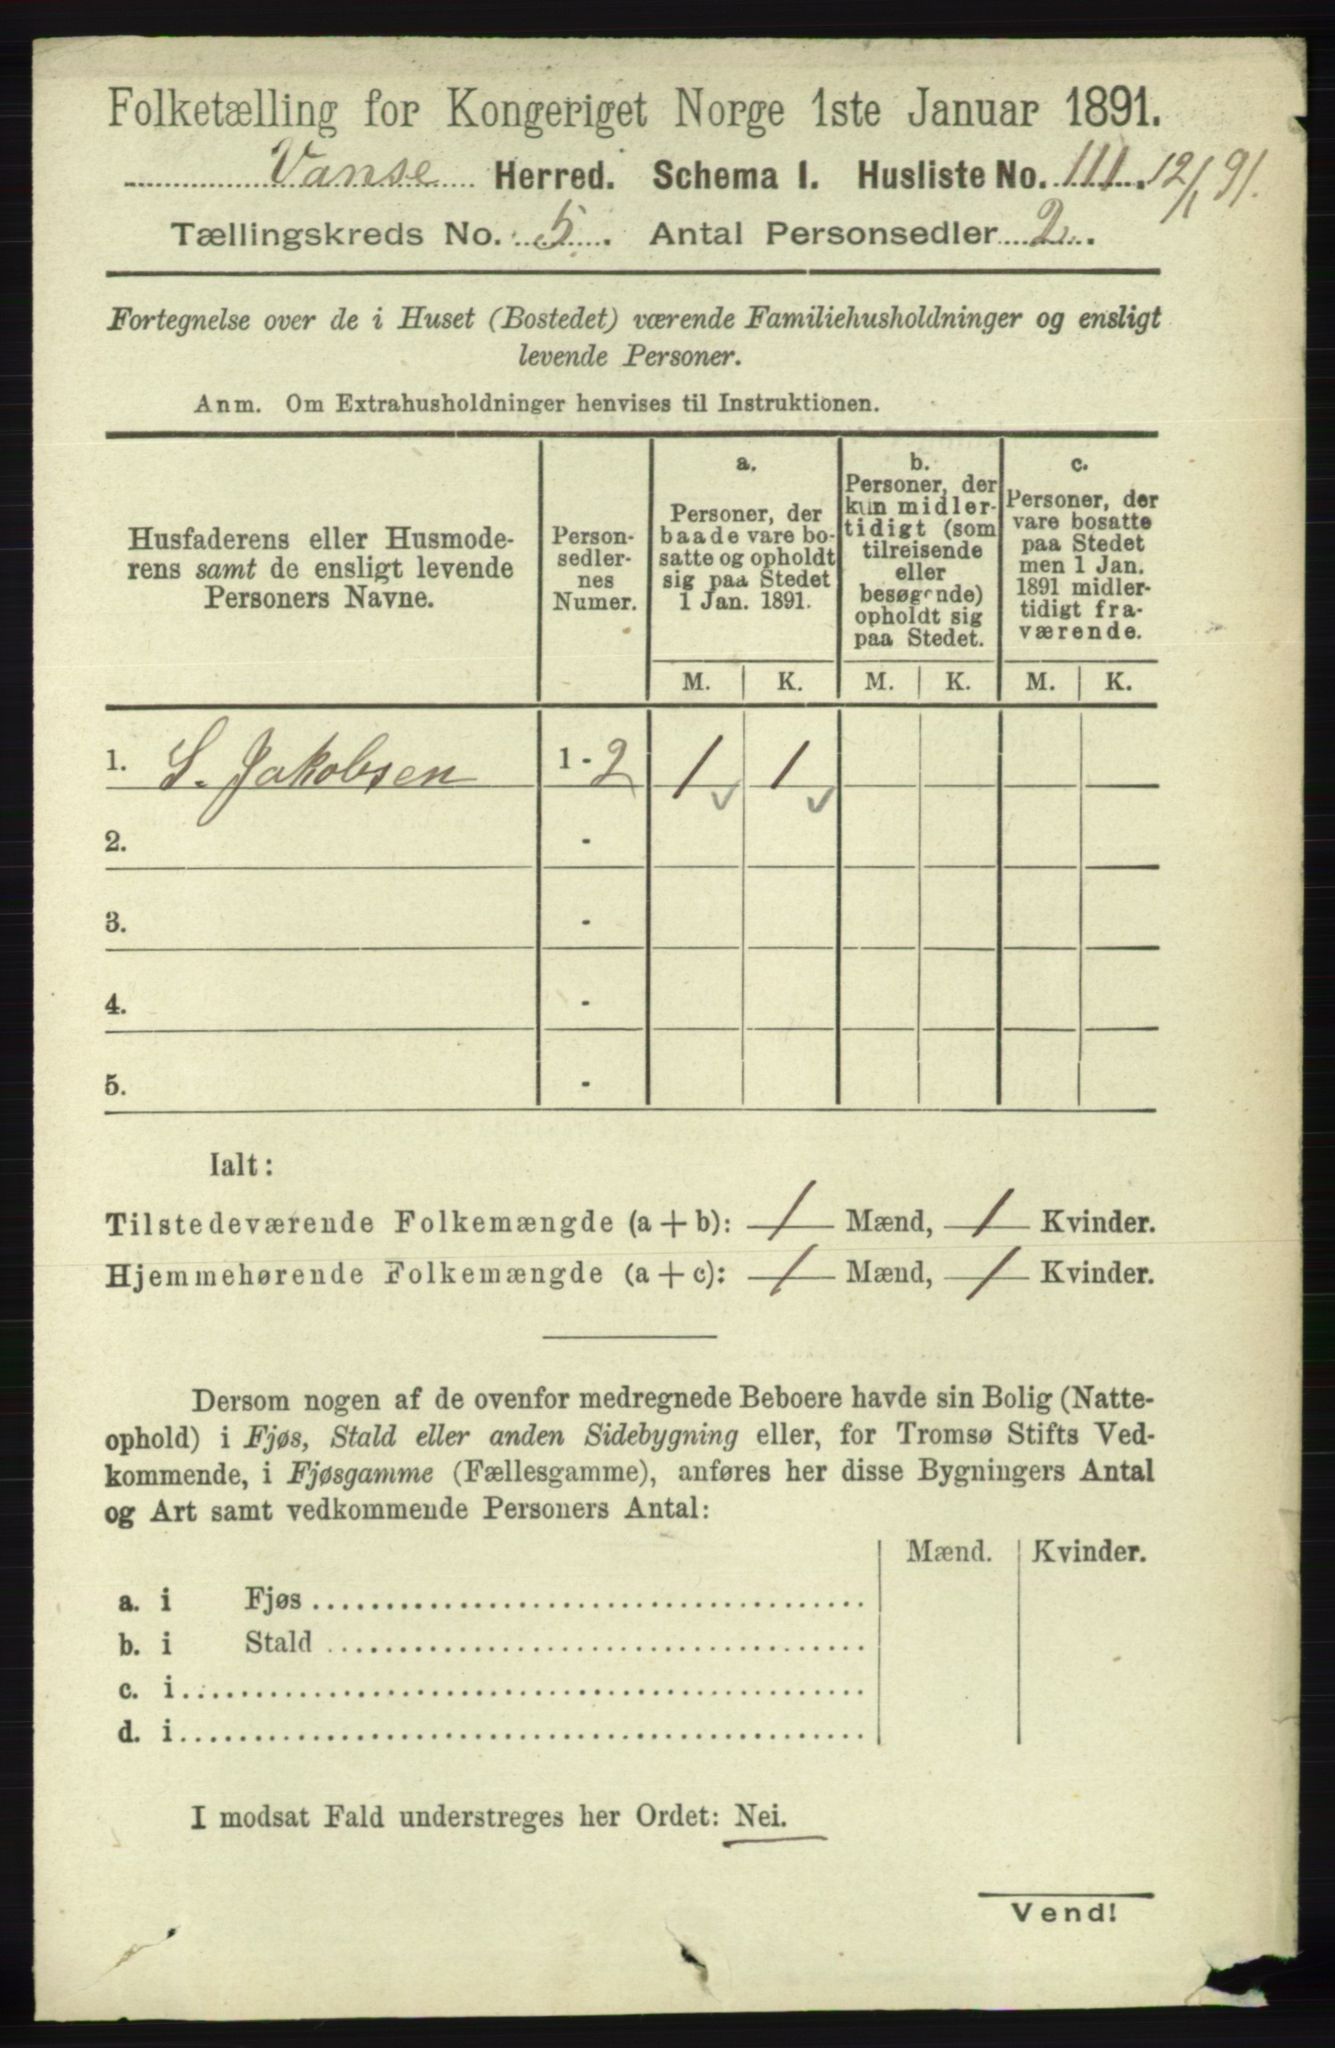 Folketælling for Kongeriget Norge 1ste Januar 1891.
Vanse Herred. Schema I. Husliste No. 111. 12/1 91.
Tællingskreds No. 5. Antal Personsedler 2.
Fortegnelse over de i Huset (Bostedet) værende Familiehusholdninger og ensligt
levende Personer.
Anm. Om Extrahusholdninger henvises til Instruktionen.
Husfaderens eller Husmode-
rens samt de ensligt levende
Personers Navne.
Person-
sedler-
nes
Numer.
a.
Personer, der
baade vare bo-
satte og opholdt
sig paa Stedet
1 Jan. 1891.
b.
Personer, der
kun midler-
tidigt (som
tilreisende
eller
besøgende)
opholdt sig
paa Stedet.
c.
Personer, der
vare bosatte
paa Stedet
men 1 Jan.
1891 midler-
tidigt fra-
værende.
M. K. M. K. M. K.
1. S. Jakobsen 1 - 2 1 1
2. -
3. -
4. -
5. -
Ialt:
Tilstedeværende Folkemængde (a + b): 1 Mænd, 1 Kvinder.
Hjemmehørende Folkemængde (a + c): 1 Mænd, 1 Kvinder.
Dersom nogen af de ovenfor medregnede Beboere havde sin Bolig (Natte-
ophold) i Fjøs, Stald eller anden Sidebygning eller, for Tromsø Stifts Ved-
kommende, i Fjøsgamme (Fællesgamme), anføres her disse Bygningers Antal
og Art samt vedkommende Personers Antal:
Mænd. Kvinder.
a. i Fjøs
b. i Stald
c. i
d. i
I modsat Fald understreges her Ordet: Nei.
Vend!